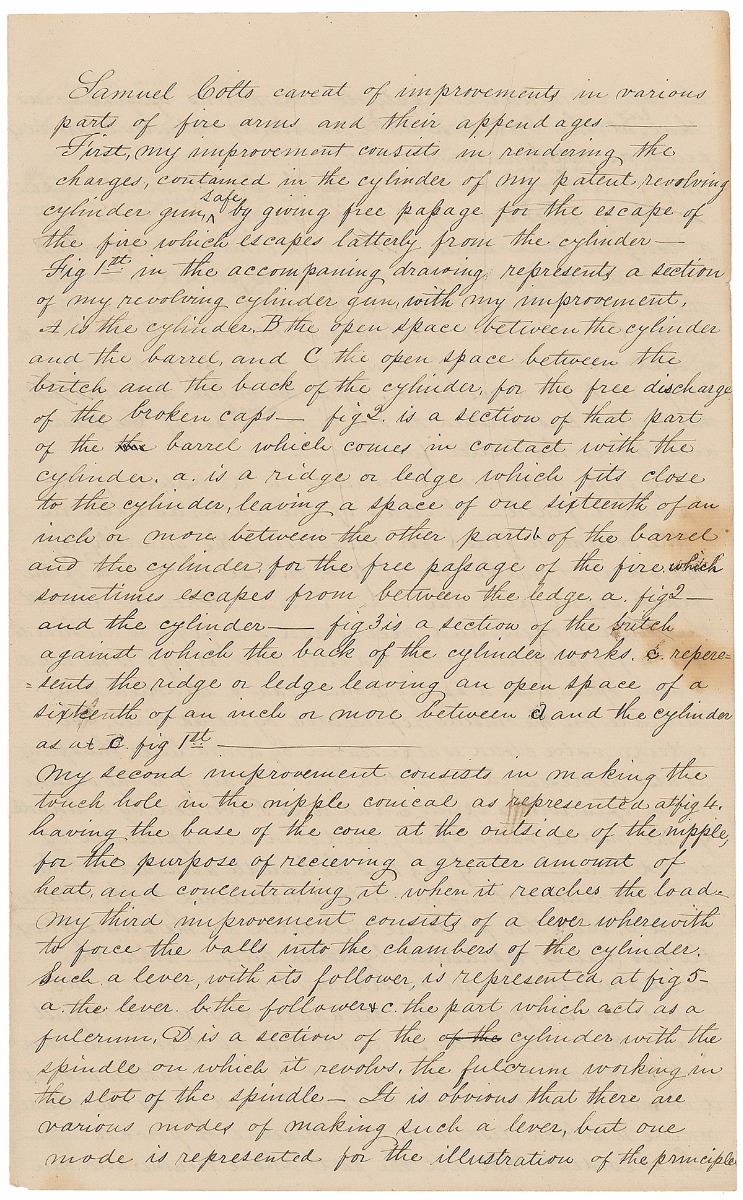 Samuel Colts caveat of improvements in various
parts of fire arms and their appendages —
First, my improvement consists in rendering the
charges, contained in the cylinder of my patent revolving
cylinder gun, safe by giving free passage for the escape of
the fire which escapes latterly from the cylinder —
Fig 1st in the accompaning drawing represents a section
of my revolving cylinder gun, with my improvement.
A is the cylinder. B the open space between the cylinder
and the barrel, and C the open space between the
britch and the back of the cylinder, for the free discharge
of the broken caps — fig 2. is a section of that part
of the the barrel which comes in contact with the
cylinder. a. is a ridge or ledge which fits close
to the cylinder, leaving a space of one sixteenth of an
inch or more between the other parts b of the barrel
and the cylinder, for the free passage of the fire which
sometimes escapes from between the ledge. a. fig 2 —
and the cylinder — fig 3 is a section of the britch
against which the back of the cylinder works. c. repere=
=sents the ridge or ledge leaving an open space of a
sixteenth of an inch or more between d and the cylinder
as at C fig 1st —
My second improvement consists in making the
touch hole in the nipple conical as represented at fig 4.
having the base of the cone at the outside of the nipple,
for the purpose of recieving a greater amount of
heat, and concentrating it when it reaches the load.
My third improvement consists of a lever wherewith
to force the balls into the chambers of the cylinder.
Such a lever, with its follower, is represented at fig 5 —
a. the lever. b. the follower & c. the part which acts as a
fulcrum, D is a section of the of the cylinder with the
spindle on which it revolvs. the fulcrum working in
the slot of the spindle — It is obvious that there are
various modes of making such a lever, but one
mode is represented for the illustration of the principle